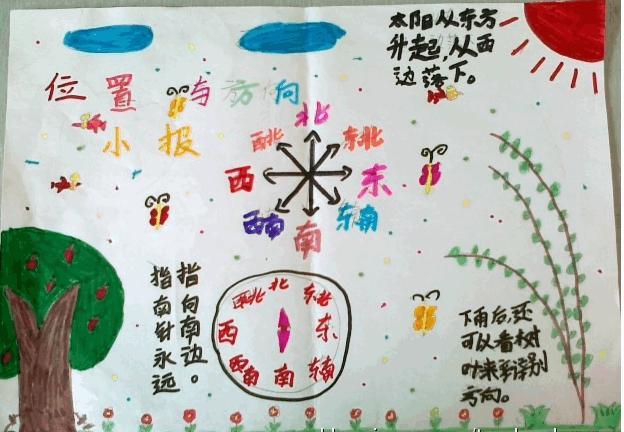 太阳从东方
升起,从西
边落下。
位置与方向
小报
北
西北 东北
西 东
西南 东南
南
指南针永远
指向南边。
西北 北 东北
西 东
西南 南 东南
下雨后,还
可以看树
叶来
别
方向。